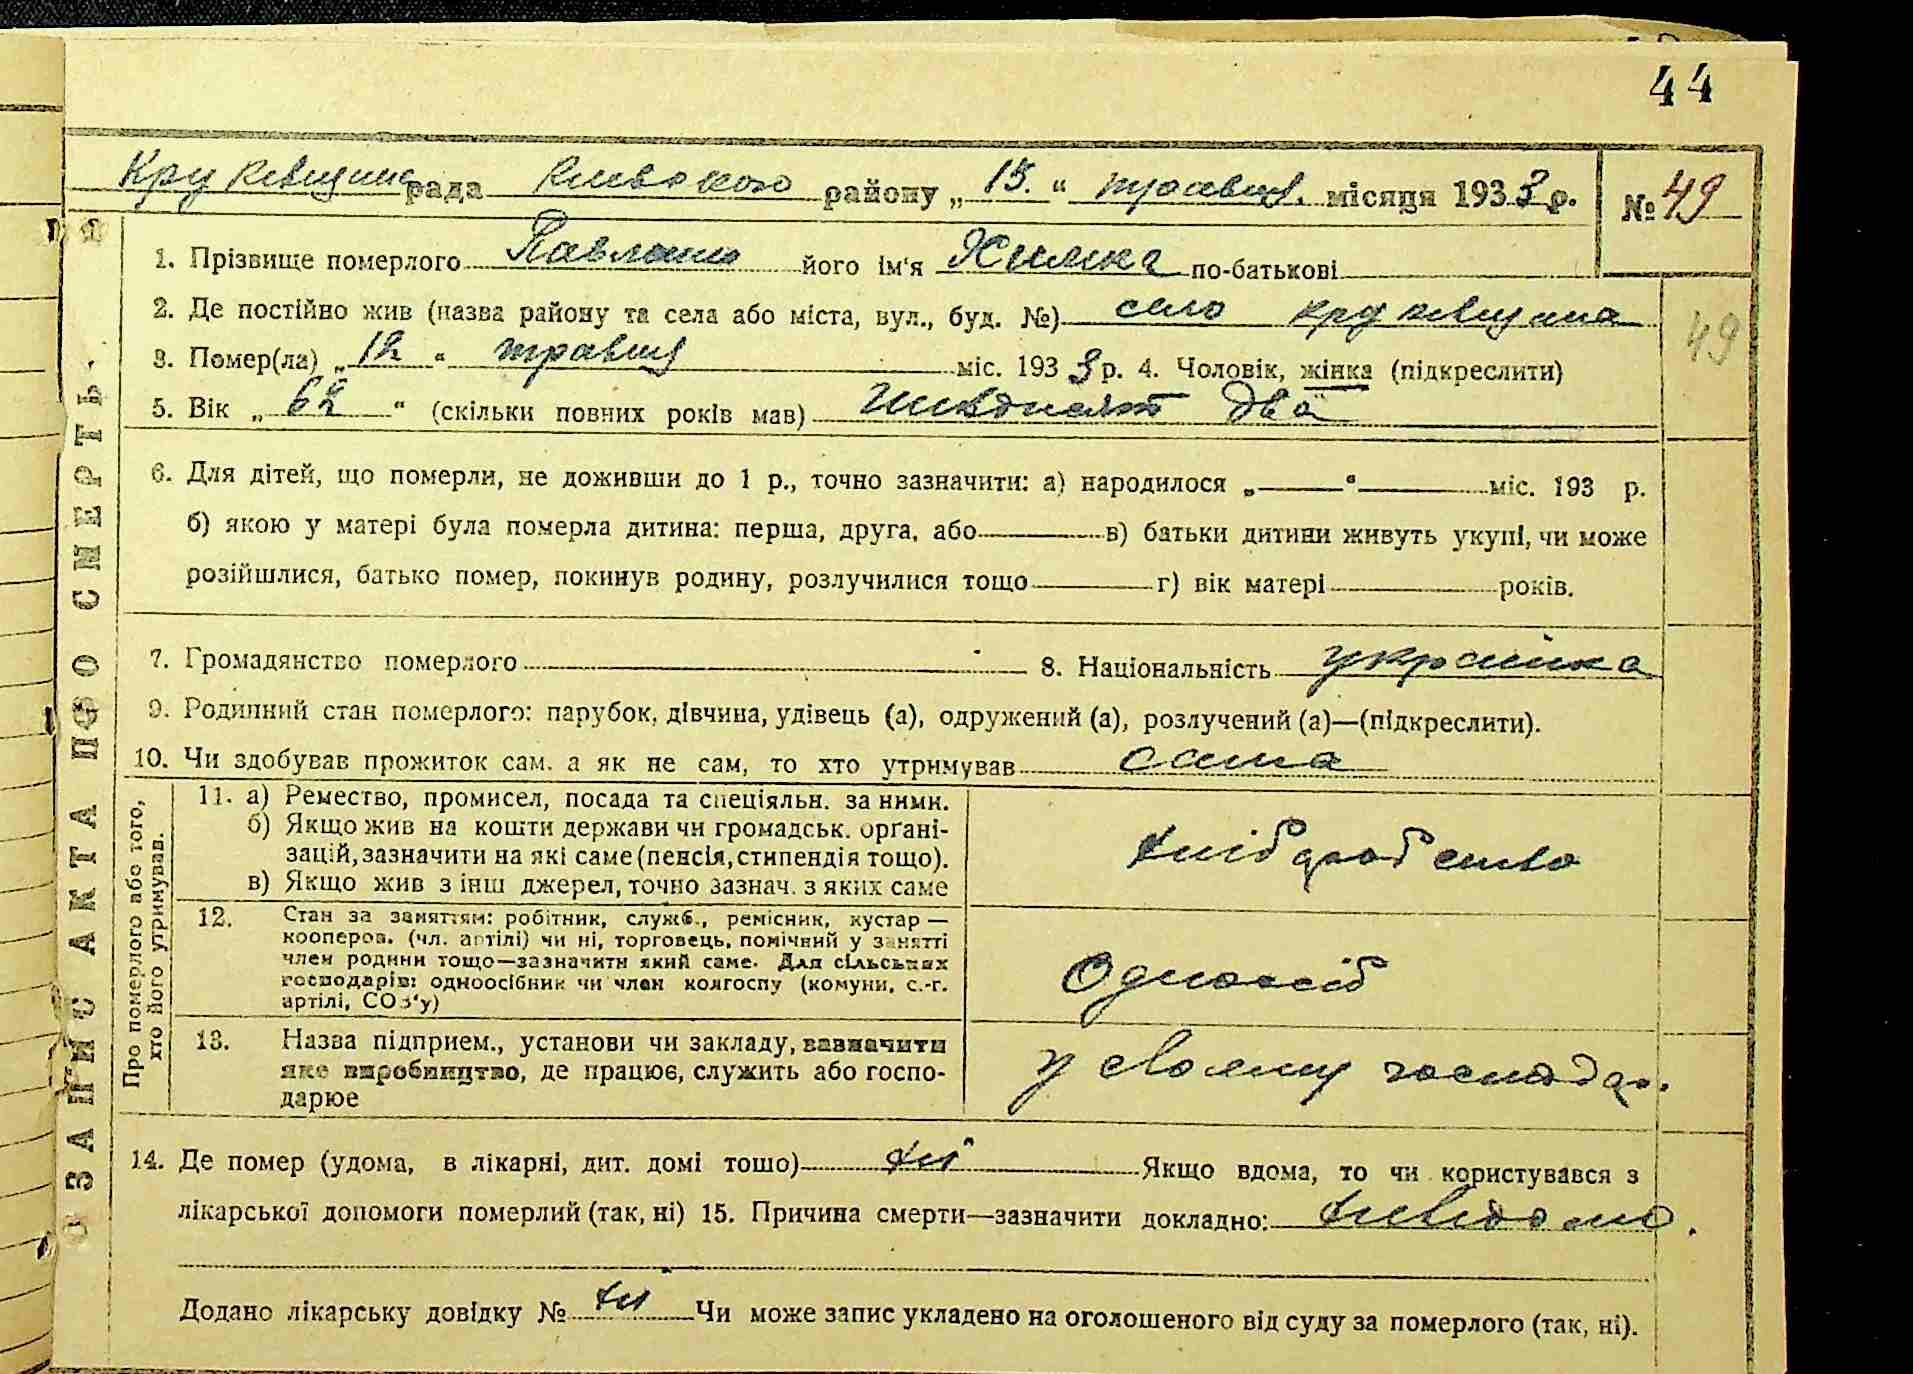 44
рада Київського району „ 15. “ травня. місяця 1933 р.
№ 49
1. Прізвище померлого його ім'я Химка по-батькові
2. Де постійно жив (назва району та села або міста, вул., буд. №) село
49
3. Помер(ла) „ 12 “ травня міс. 1933 р. 4. Чоловік, жінка (підкреслити)
5. Вік „ 62 “ (скільки повних років мав) два
6. Для дітей, що померли, не доживши до 1 р., точно зазначити: а) народилося „ “ міс. 193 р.
б) якою у матері була померла дитина: перша, друга, або в) батьки дитини живуть укупі, чи може
розійшлися, батько помер, покинув родину, розлучилися тощо г) вік матері років.
7. Громадянство померлого 8. Національність українка
9. Родинний стан померлого: парубок, дівчина, удівець (а), одружений (а), розлучений (а)—(підкреслити).
10. Чи здобував прожиток сам, а як не сам, то хто утримував сама
Про померлого або того,
хто його утримував.
11. а) Ремество, промисел, посада та спеціяльн. за ними.
б) Якщо жив на кошти держави чи громадськ. організацій,
зазначити на які саме (пенсія, стипендія тощо).
в) Якщо жив з інш джерел, точно зазнач. з яких саме
12. Стан за заняттям: робітник, служб., ремісник, кустар —
кооперов. (чл. артілі) чи ні, торговець, помічний у занятті
член родини тощо—зазначити який саме. Для сільських
господарів: одноосібник чи член колгоспу (комуни, с.-г.
артілі, СОЗ'у)
Одноосіб
13. Назва підприєм., установи чи закладу, зазначити
яке виробництво, де працює, служить або господарює
у своєму господар.
14. Де помер (удома, в лікарні, дит. домі тощо) ні Якщо вдома, то чи користувався з
лікарської допомоги померлий (так, ні) 15. Причина смерти—зазначити докладно: невідомо.
Додано лікарську довідку № ні Чи може запис укладено на оголошеного від суду за померлого (так, ні).
ЗАПИС АКТА ПРО СМЕРТЬ